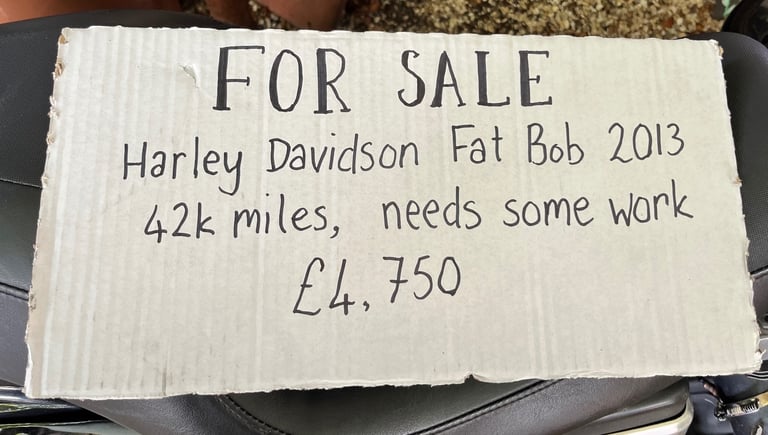 FOR SALE
Harley Davidson Fat Bob 2013
42k miles, needs some work
£4,750